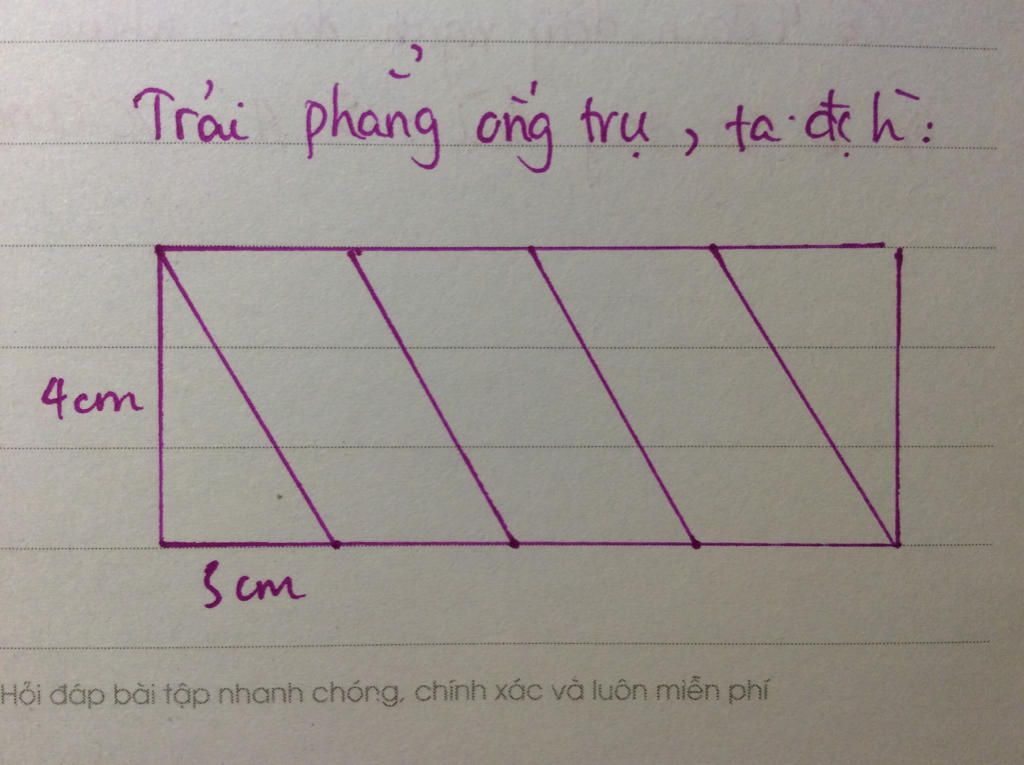 Trải phẳng ống trụ, ta đc h̀:
4cm
3cm
Hỏi đáp bài tập nhanh chóng, chính xác và luôn miễn phí